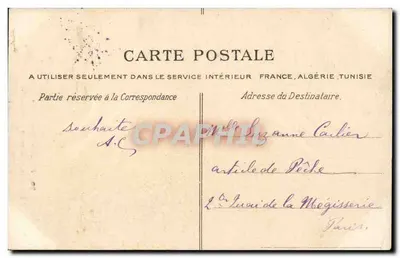 CARTE POSTALE
A UTILISER SEULEMENT DANS LE SERVICE INTÉRIEUR FRANCE, ALGÉRIE, TUNISIE
Partie réservée à la Correspondance
Adresse du Destinataire.
souhaite
A.C
CPAPHIL
Mlle Suzanne Carlier
article de Pêche
Quai de la Mégisserie
Paris